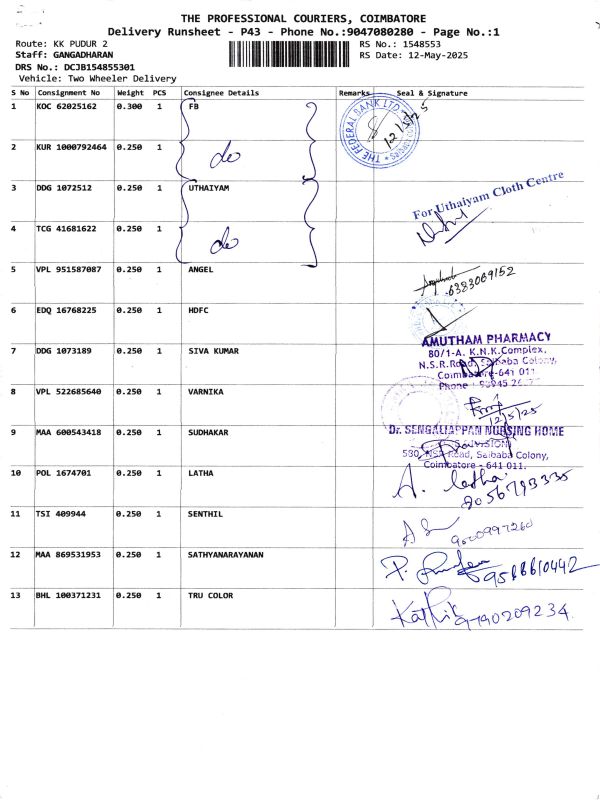 THE PROFESSIONAL COURIERS, COIMBATORE
Delivery Runsheet - P43 - Phone No.:9047080280 - Page No.:1
Route: KK PUDUR 2 RS No.: 1548553
Staff: GANGADHARAN RS Date: 12-May-2025
DRS No.: DCJB154855301
Vehicle: Two Wheeler Delivery
S No Consignment No Weight PCS Consignee Details Remarks Seal & Signature
1 KOC 62025162 0.300 1 FB
THE FEDERAL BANK LTD
12/5/25
2 KUR 1000792464 0.250 1 do
3 DDG 1072512 0.250 1 UTHAIYAM
For Uthaiyam Cloth Centre
4 TCG 41681622 0.250 1 do
5 VPL 951587087 0.250 1 ANGEL
6383069152
6 EDQ 16768225 0.250 1 HDFC
AMUTHAM PHARMACY
7 DDG 1073189 0.250 1 SIVA KUMAR
80/1-A, K.N.K.Complex,
N.S.R.Road, Saibaba Colony,
Coimbatore-641 011
Phone
8 VPL 522685640 0.250 1 VARNIKA
12/5/25
9 MAA 600543418 0.250 1 SUDHAKAR
Dr. SENGALIAPPAN NURSING HOME
580, NSR Road, Saibaba Colony,
Coimbatore - 641 011.
10 POL 1674701 0.250 1 LATHA
A. latha
9056793335
11 TSI 409944 0.250 1 SENTHIL
9600997260
12 MAA 869531953 0.250 1 SATHYANARAYANAN
9566610442
13 BHL 100371231 0.250 1 TRU COLOR
Kathik
9790209234